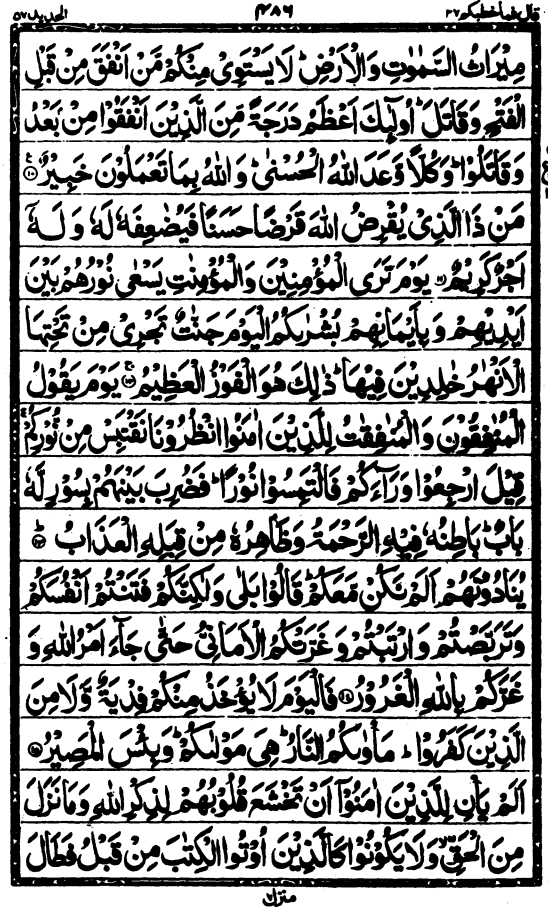 قال فما خطبكم ٢٧ ٤٨٦ الحديد ٥٧
مِيْرَاثُ السَّمٰوٰتِ وَالْاَرْضِ ؕ لَا يَسْتَوِيْ مِنْكُمْ مَّنْ اَنْفَقَ مِنْ قَبْلِ
الْفَتْحِ وَقٰتَلَ ؕ اُولٰٓئِكَ اَعْظَمُ دَرَجَةً مِّنَ الَّذِيْنَ اَنْفَقُوْا مِنْۢ بَعْدُ
وَقٰتَلُوْا ؕ وَكُلًّا وَّعَدَ اللّٰهُ الْحُسْنٰى ؕ وَاللّٰهُ بِمَا تَعْمَلُوْنَ خَبِيْرٌ ۝۱۰
مَنْ ذَا الَّذِيْ يُقْرِضُ اللّٰهَ قَرْضًا حَسَنًا فَيُضٰعِفَهٗ لَهٗ وَلَهٗٓ
اَجْرٌ كَرِيْمٌ ۝۱۱ يَوْمَ تَرَى الْمُؤْمِنِيْنَ وَالْمُؤْمِنٰتِ يَسْعٰى نُوْرُهُمْ بَيْنَ
اَيْدِيْهِمْ وَبِاَيْمَانِهِمْ بُشْرٰىكُمُ الْيَوْمَ جَنّٰتٌ تَجْرِيْ مِنْ تَحْتِهَا
الْاَنْهٰرُ خٰلِدِيْنَ فِيْهَا ؕ ذٰلِكَ هُوَ الْفَوْزُ الْعَظِيْمُ ۝۱۲ يَوْمَ يَقُوْلُ
الْمُنٰفِقُوْنَ وَالْمُنٰفِقٰتُ لِلَّذِيْنَ اٰمَنُوا انْظُرُوْنَا نَقْتَبِسْ مِنْ نُّوْرِكُمْ ۚ
قِيْلَ ارْجِعُوْا وَرَآءَكُمْ فَالْتَمِسُوْا نُوْرًا ؕ فَضُرِبَ بَيْنَهُمْ بِسُوْرٍ لَّهٗ
بَابٌ ؕ بَاطِنُهٗ فِيْهِ الرَّحْمَةُ وَظَاهِرُهٗ مِنْ قِبَلِهِ الْعَذَابُ ۝۱۳
يُنَادُوْنَهُمْ اَلَمْ نَكُنْ مَّعَكُمْ ؕ قَالُوْا بَلٰى وَلٰكِنَّكُمْ فَتَنْتُمْ اَنْفُسَكُمْ
وَتَرَبَّصْتُمْ وَارْتَبْتُمْ وَغَرَّتْكُمُ الْاَمَانِيُّ حَتّٰى جَآءَ اَمْرُ اللّٰهِ وَ
غَرَّكُمْ بِاللّٰهِ الْغَرُوْرُ ۝۱۴ فَالْيَوْمَ لَا يُؤْخَذُ مِنْكُمْ فِدْيَةٌ وَّلَا مِنَ
الَّذِيْنَ كَفَرُوْا ؕ مَاْوٰىكُمُ النَّارُ ؕ هِيَ مَوْلٰىكُمْ ؕ وَبِئْسَ الْمَصِيْرُ ۝۱۵
اَلَمْ يَاْنِ لِلَّذِيْنَ اٰمَنُوْٓا اَنْ تَخْشَعَ قُلُوْبُهُمْ لِذِكْرِ اللّٰهِ وَمَا نَزَلَ
مِنَ الْحَقِّ ۙ وَلَا يَكُوْنُوْا كَالَّذِيْنَ اُوْتُوا الْكِتٰبَ مِنْ قَبْلُ فَطَالَ
منزل ٧